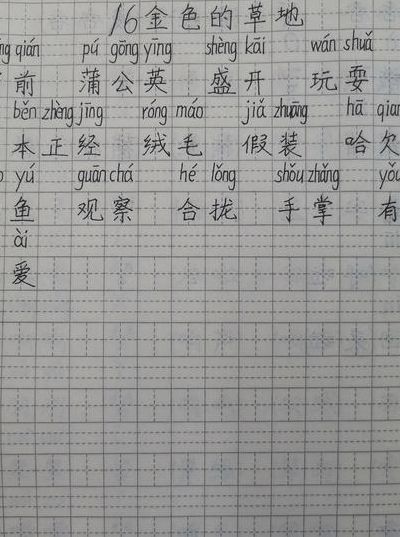 16金色的草地
qián pú gōng yīng shèng kāi wán shuǎ
前 蒲公英 盛开 玩耍
běn zhèng jīng róng máo jiǎ zhuāng hā qian
本正经 绒毛 假装 哈欠
yú guān chá hé lǒng shǒu zhǎng yǒu
鱼 观察 合拢 手掌 有
ài
爱